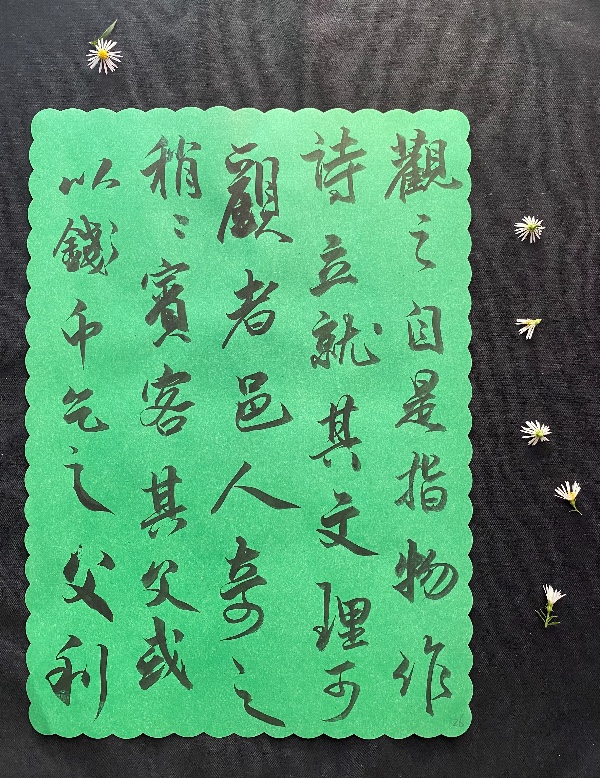 觀之自是指物作
詩立就其文理可
顧者邑人奇之
稍〻賓客其父或
以錢币乞之父利